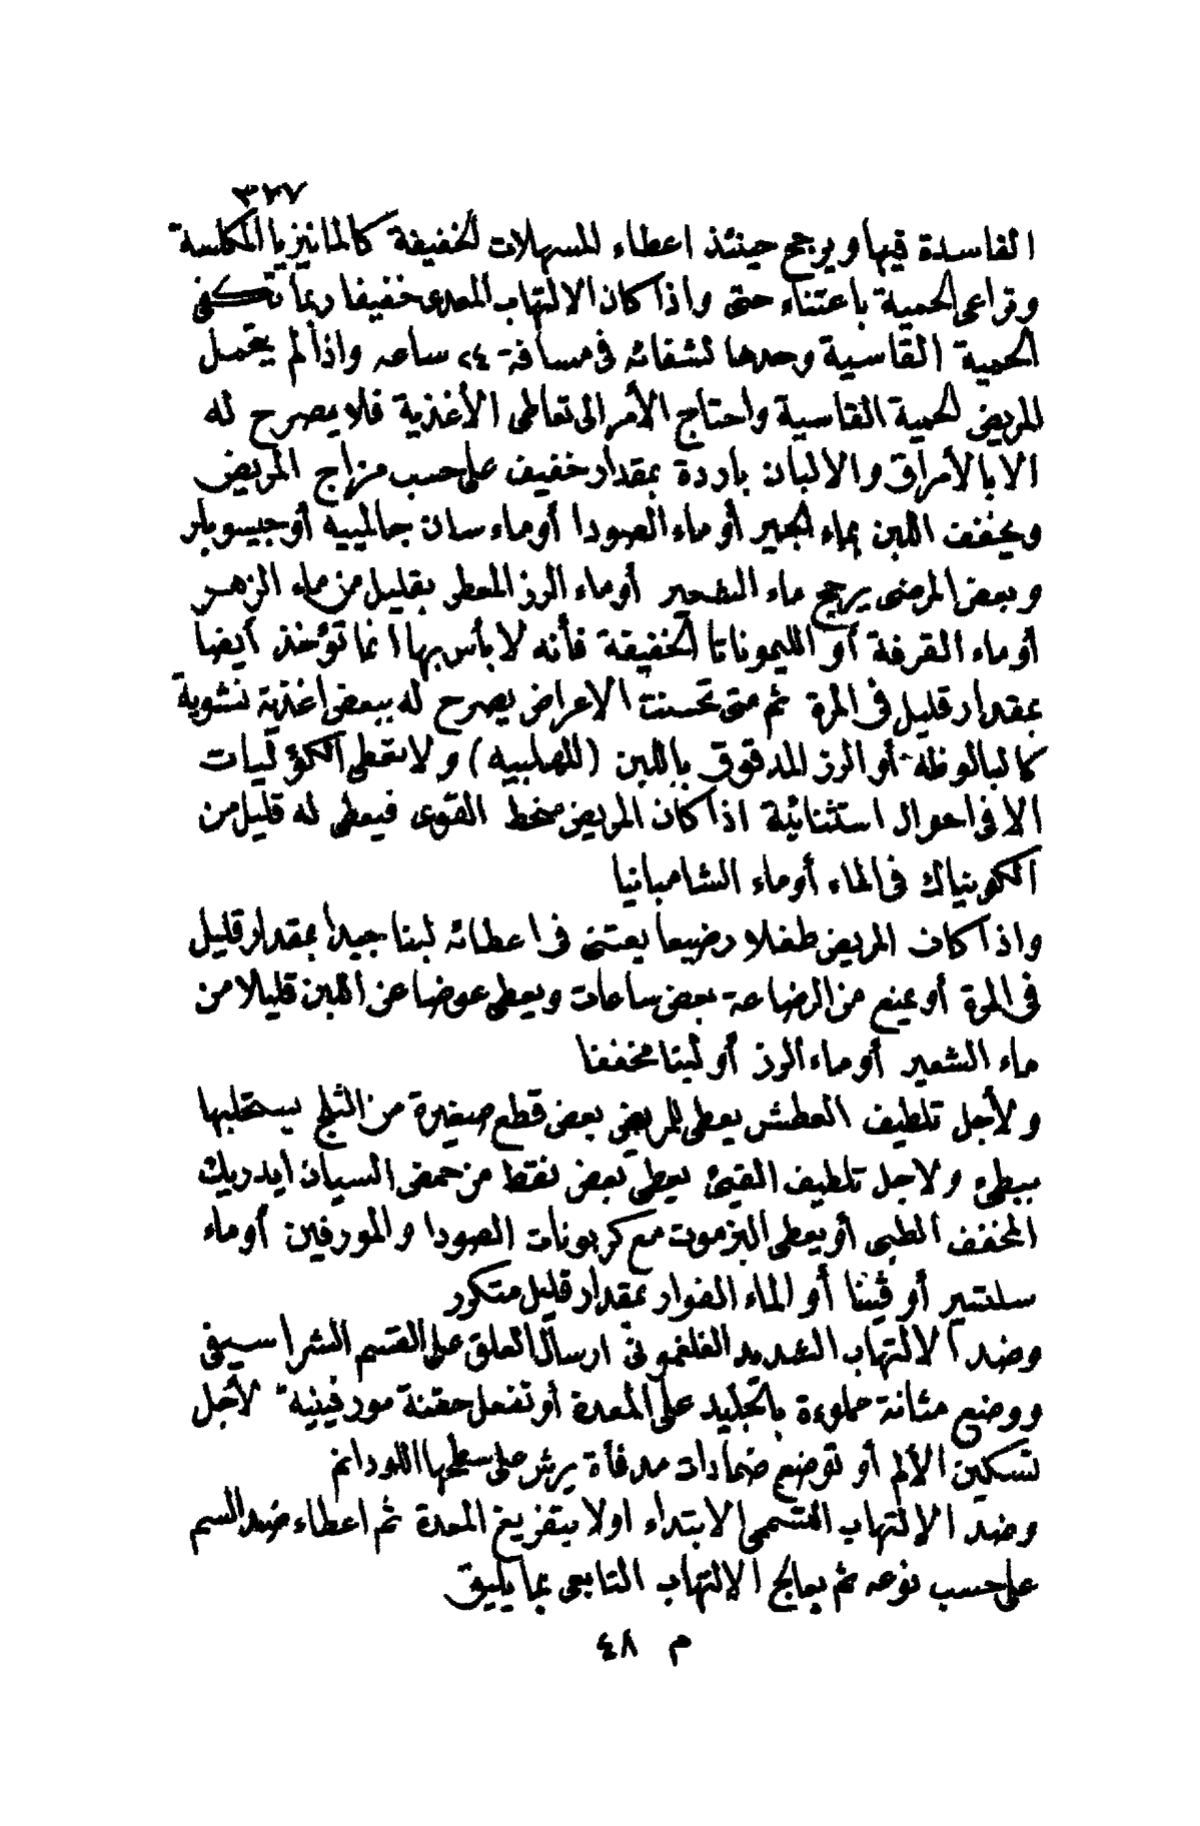 ٣٧٧
الفاسدة فيها ويرجح حينئذ اعطاء المسهلات الخفيفة كالمانيزيا المكلسة
وتراعى الحمية باعتناء حتى واذا كان الالتهاب المعدى خفيفا ربما تكفى
الحمية القاسية وحدها لشفائه فى مسافة ٢٤ ساعه واذا لم يتحمل
المريض الحمية القاسية واحتاج الأمر الى تعاطى الأغذية فلا يصرح له
الا بالأمراق والالبان باردة بمقدار خفيف على حسب مزاج المريض
ويخفف اللبن بماء الجير أو ماء الصودا أو ماء سان جالمييه أو جيسوبلر
وبعض المرضى يرجح ماء الشعير أو ماء الرز المعطر بقليل من ماء الزهر
أو ماء القرفة أو الليموناتا الخفيفة فأنه لا بأس بها انما تؤخذ أيضا
بمقدار قليل فى المرة ثم متى تحسنت الاعراض يصرح له ببعض اغذية نشوية
كالبالوظة أو الرز المدقوق باللبن (المهلبيه) ولا تعطى الكؤليات
الا فى احوال استثنائية اذا كان المريض منحط القوى فيعطى له قليل من
الكونياك فى الماء أو ماء الشامبانيا
واذا كان المريض طفلا رضيعا يعتنى فى اعطائه لبنا جيدا بمقدار قليل
فى المرة أو يمنع من الرضاعة بعض ساعات ويعطى عوضا عن اللبن قليلا من
ماء الشعير أو ماء الرز أو لبنا مخففا
ولأجل تلطيف العطش يعطى المريض بعض قطع صغيرة من الثلج يستحلبها
ببطئ ولاجل تلطيف القيئ يعطى بعض نقط من حمض السيان ايدريك
المخفف الطبى أو يعطى البزموت مع كربونات الصودا والمورفين أو ماء
سلتسير أو ڤيتنا أو الماء الفوار بمقدار قليل متكرر
وضد الالتهاب الشديد الفلغمونى ارسال العلق على القسم الشراسيفى
ووضع مثانة مملوءة بالجليد على المعدة أو تفعل حقنة مورفينية لأجل
تسكين الألم أو توضع ضمادات مدفأة يرش على سطحها اللودانم
وضد الالتهاب التسممى الابتداء اولا بتفريغ المعدة ثم اعطاء ضد السم
على حسب نوعه ثم يعالج الالتهاب التابعى بما يليق
م ٤٨